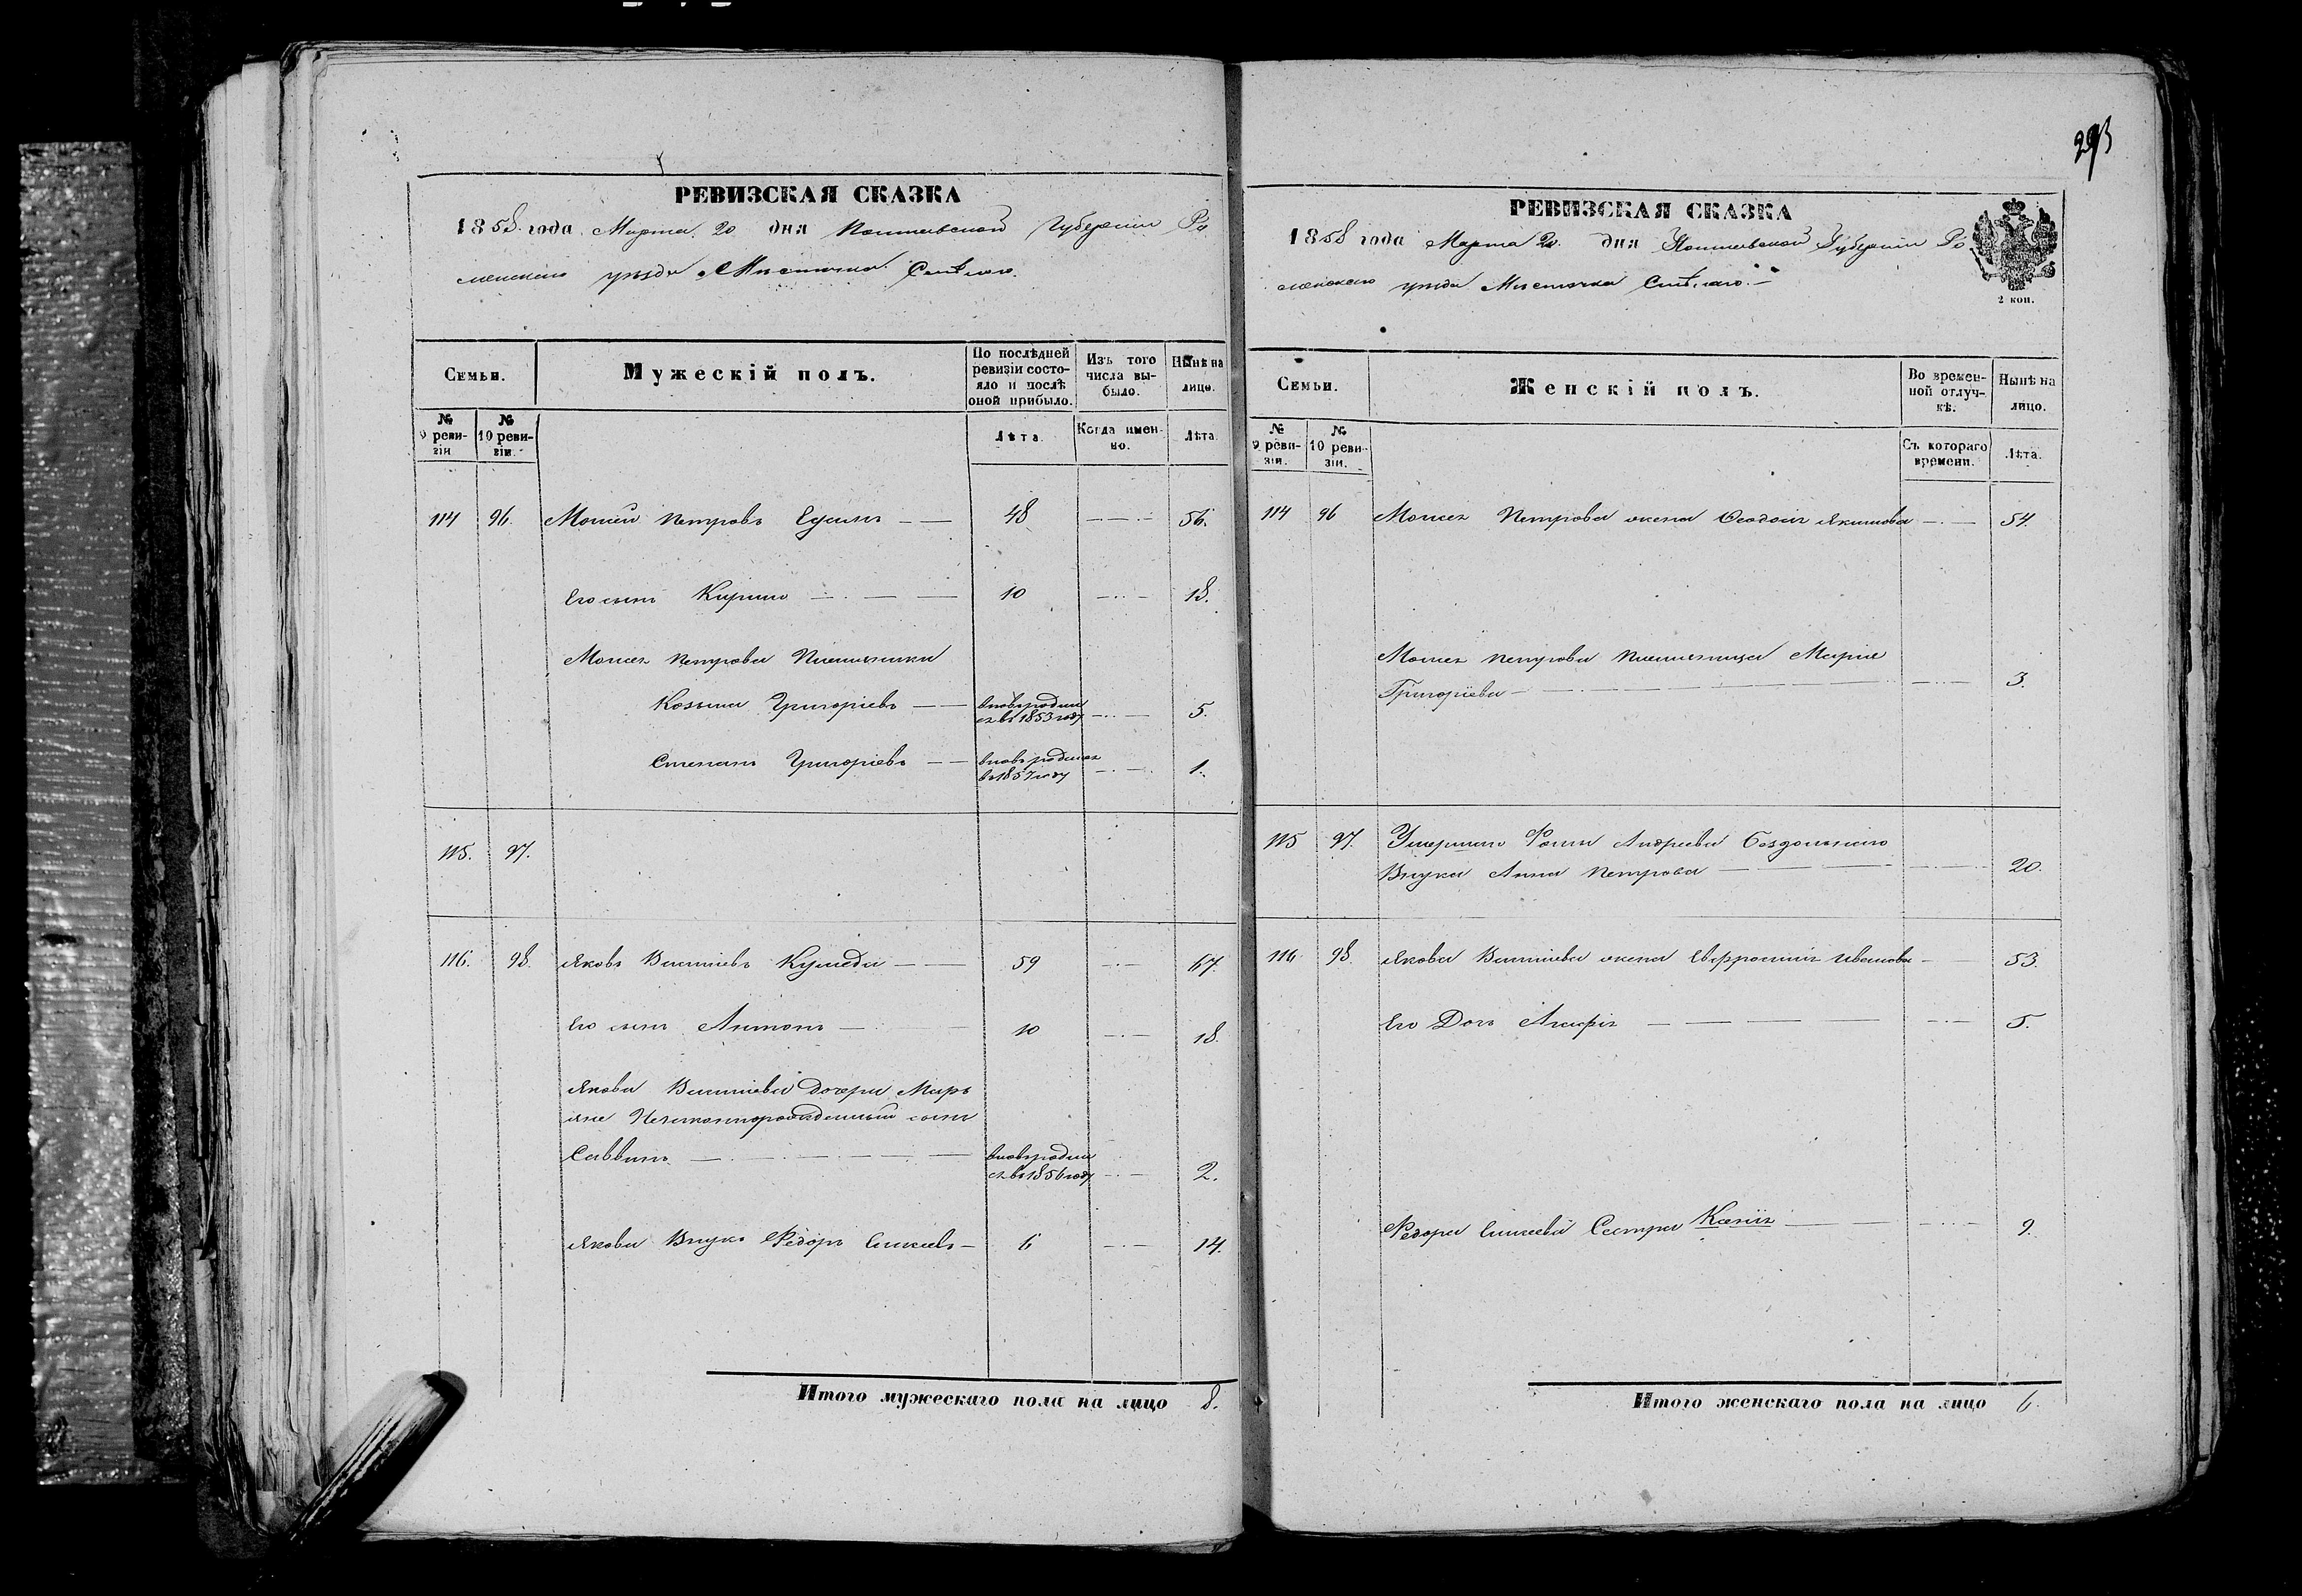 293
РЕВИЗСКАЯ СКАЗКА
1858 года Марта 20 дня Полтавской Губерніи Ро
менскаго уѣзда Мѣстечка Смѣлаго.
Семьи.
Мужескій полъ.
По послѣдней ревизіи состояло и послѣ оной прибыло.
Изъ того числа выбыло.
Нынѣ на лицо.
№ 9 ревизіи
№ 10 ревизіи.
Лѣта.
Когда именно.
Лѣта.
114 96. Моисей Петровъ 48 56.
Его сынъ Кирило 10 18.
Моисея Петрова Племянники
Козьма Григоріевъ вновь родил
ся въ 1853 году 5.
Степанъ Григоріевъ вновь родился
въ 1857 году 1.
115. 97.
116. 98. Яковъ Василіевъ 59 67.
Его сынъ Антонъ 10 18.
Якова Василіева дочери Марь
яне Незаконнорожденный сынъ
Савва вновь родил
ся въ 1856 году 2.
Якова Внукъ Федоръ 6 14.
Итого мужескаго пола на лицо 8.
РЕВИЗСКАЯ СКАЗКА
1858 года Марта 20 дня Полтавской Губерніи Ро
менскаго уѣзда Мѣстечка Смѣлаго.
2 коп.
Семьи.
Женскій полъ.
Во временной отлучкѣ.
Нынѣ на лицо.
№ 9 ревизіи.
№ 10 ревизіи.
Съ котораго времени.
Лѣта.
114 96 Моисея Петрова жена Феодосія Якимова 54.
Моисея Петрова Племянница Марія
Григоріева 3.
115 97. Умершаго Фомы Андреева
Внука Анна Петрова 20.
116 98. Якова Василіева жена Евфросинія Иванова 53.
Его Дочь Агафія 5.
Федора Сестра Ксенія 9.
Итого женскаго пола на лицо 6.